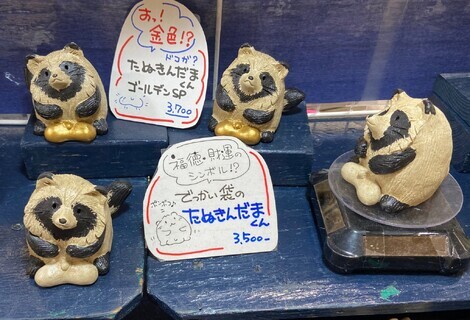 おっ!
金色!?
ドコが?
たぬきんだま
くん
ゴールデンSP
3,700
福徳・財運の
シンボル!?
でっかい袋の
たぬきんだま
くん
3,500-